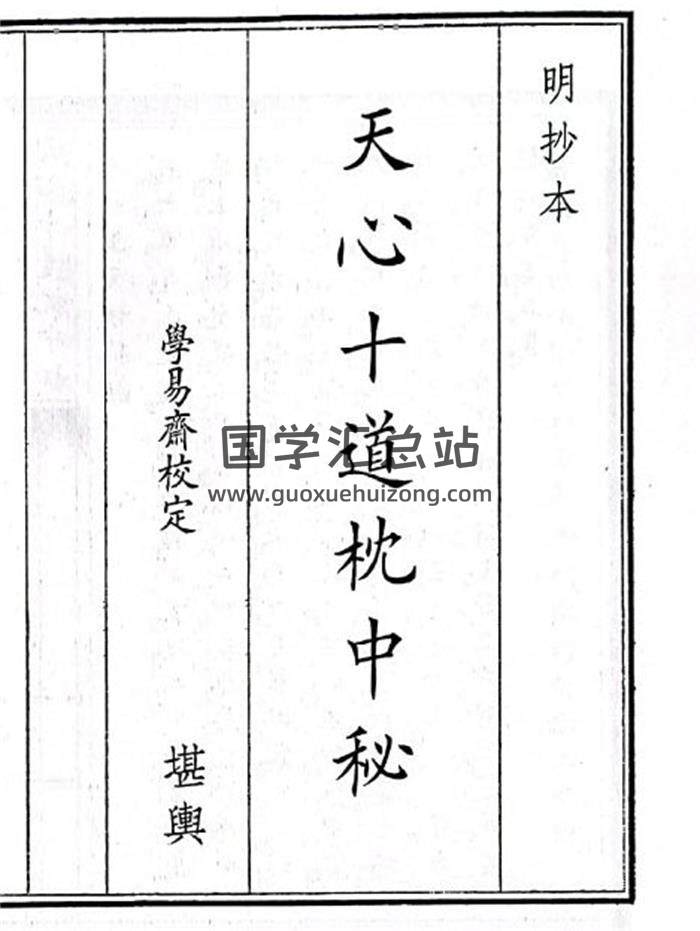 明抄本
天心十道枕中秘
學易齋校定
堪輿
国学汇总站
www.guoxuehuizong.com